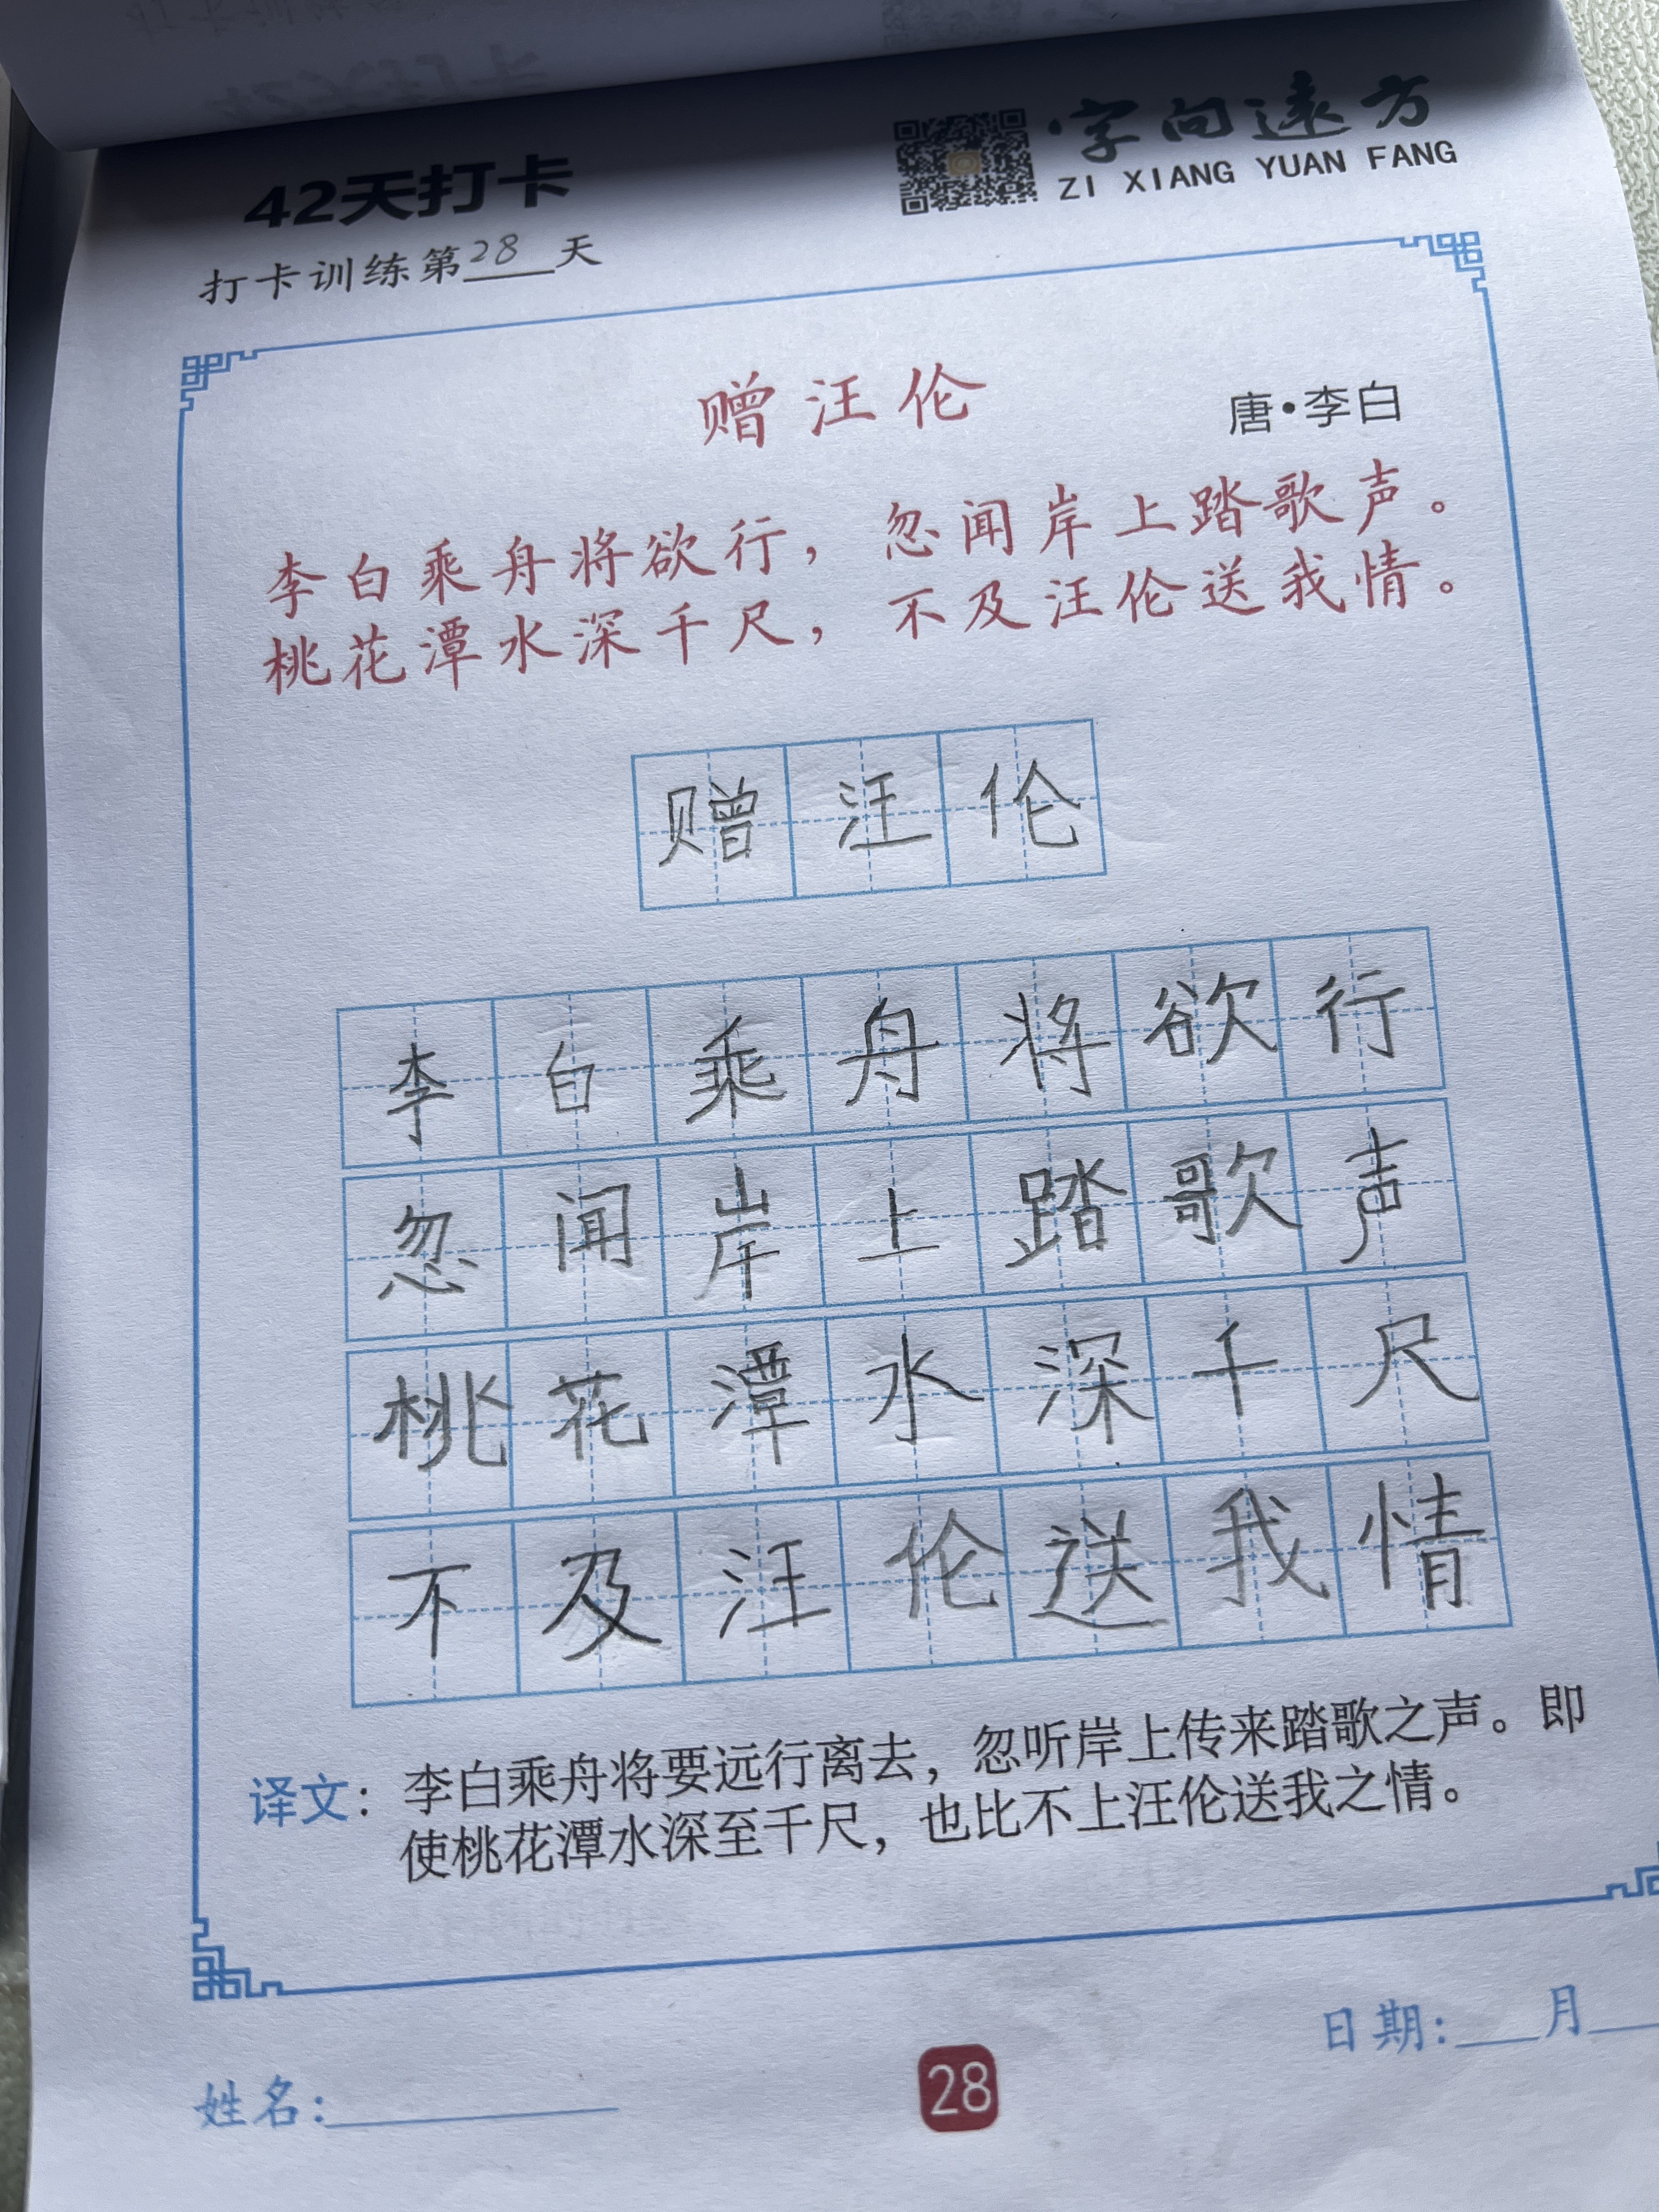 42天打卡
字向远方
ZI XIANG YUAN FANG
打卡训练第28天
赠汪伦
唐·李白
李白乘舟将欲行，忽闻岸上踏歌声。
桃花潭水深千尺，不及汪伦送我情。
赠汪伦
李白乘舟将欲行
忽闻岸上踏歌声
桃花潭水深千尺
不及汪伦送我情
译文：李白乘舟将要远行离去，忽听岸上传来踏歌之声。即
使桃花潭水深至千尺，也比不上汪伦送我之情。
姓名：
28
日期：___月___